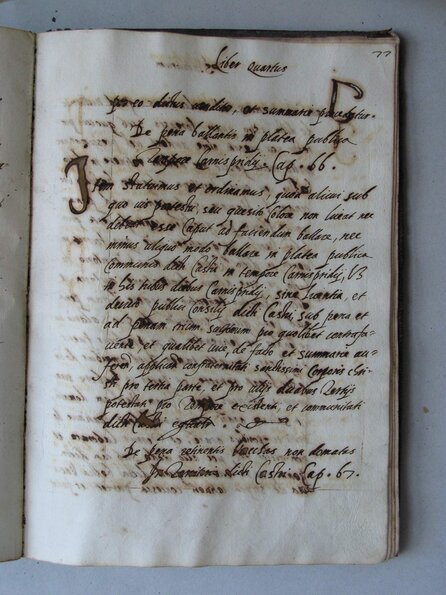 Liber Quartus
77
pro eo dictus venditor, et summarie procedatur.
De pena ballantis in platea publica
in tempore Carnisprivij Cap. 66.
Item statuimus et ordinamus, quod alicui sub
quo vis pretextu, seu quesito colore non liceat nec
debeat esse Caput ad faciendum ballare, nec
minus aliquo modo ballare in platea publica
Communis dicti Castri in tempore Carnisprivij,
in his tribus diebus Carnisprivij, sine licentia, et
decreto publici Consilij dicti Castri, sub pena et
ad penam trium pro quolibet contrafa
ciente et qualibet vice, de facto et summarie au
ferend applicand confraternitati sanctissimi Corporis Chri
sti pro tertia parte et pro alijs duabus partijs
potestati pro tempore existenti, et communitati
dicti Castri
De pena retinentis bestias non domatas
in territorio dicti Castri Cap. 67.